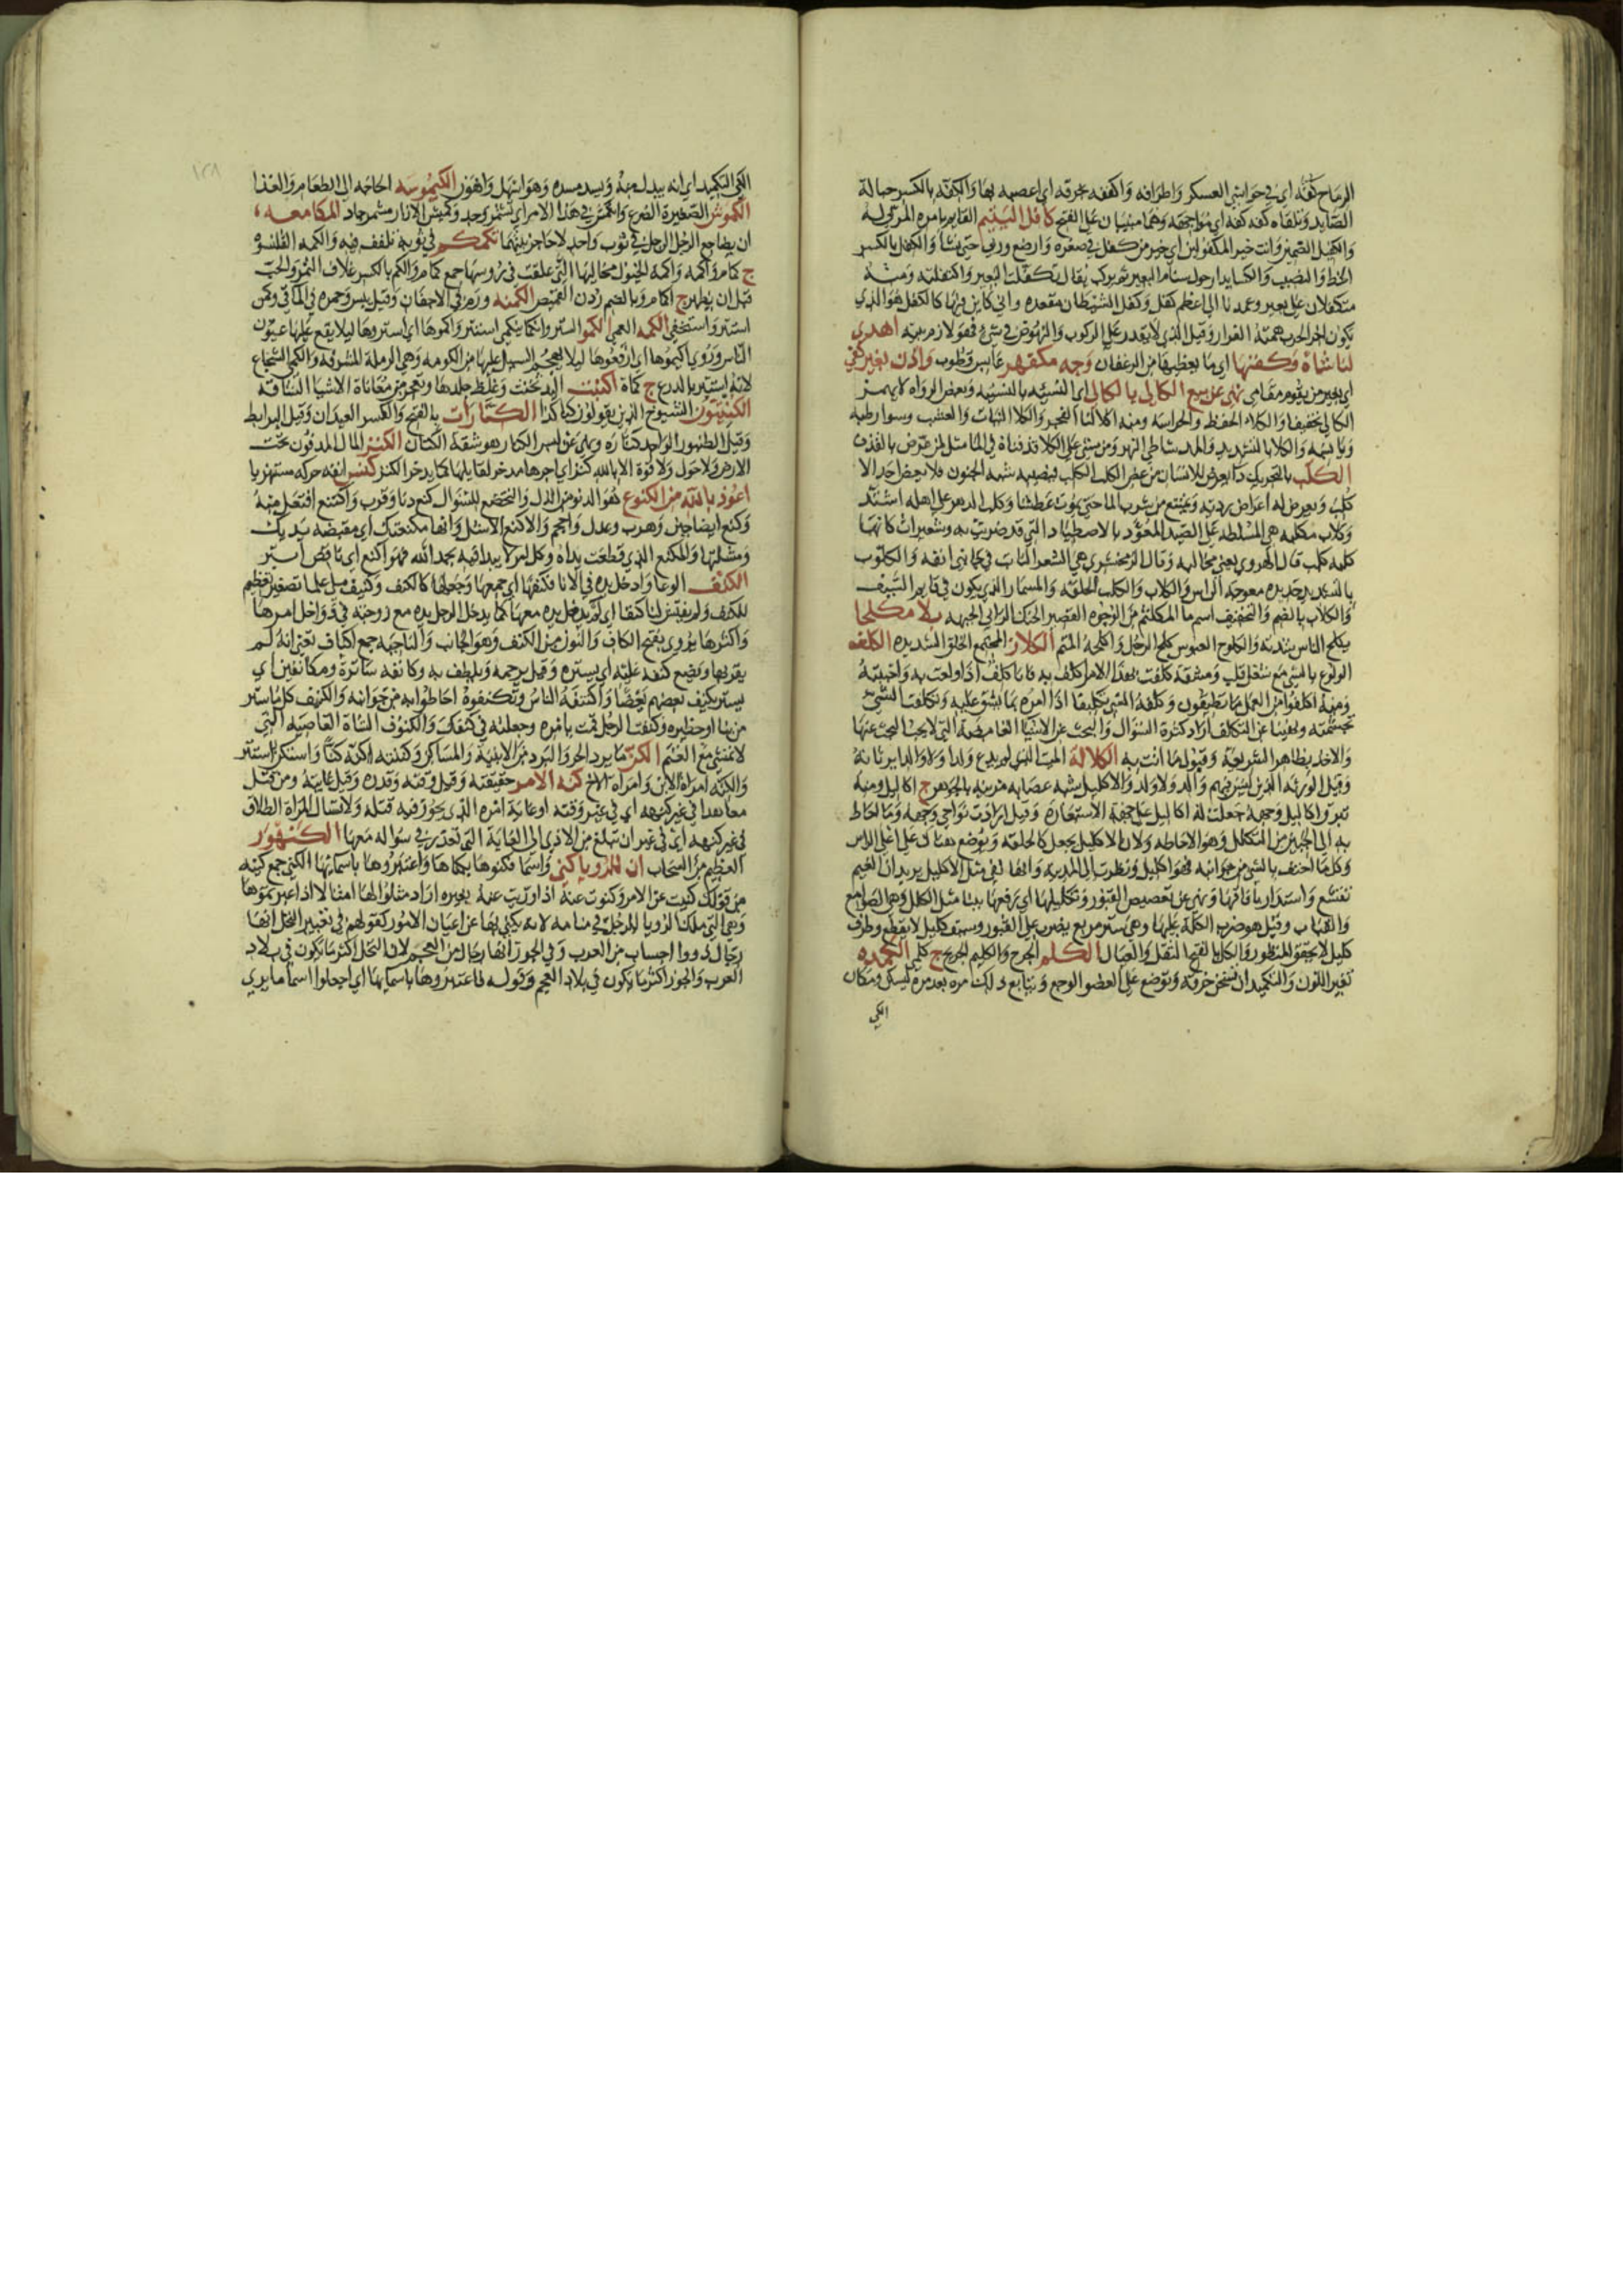 الرماح كفه اي في حواشي العسكر واطرافه واكففه بخرقه اي اعصبه بها والكفه بالكسر حبالة
الصايد ولقاه كفه كفه اي مواجهة وهما مبنيان على الفتح كافل اليتيم القايم بامره المربي له
والكفيل الضمين وانت خير المكفولين اي خير من كفل في صغره وارضع وربي حتى نشا والكفل بالكسر
الحظ والنصيب والكسا يدار حول سنام البعير ثم يركب يقال تكفلت البعير واكتفلته ومنه
متكفلان على بعير وعمدنا الى اعظم كفل وكفل الشيطان مقعده واني كاين فيها كالكفل هو الذي
يكون اخر الحرب همته الفرار وقيل الذي لا يقدر على الركوب والنهوض في شي فهو لازم بيته اهدي
لنا شاة وكفنها اي ما يغطيها من الرغفان وجه مكفهر عابس قطوب واذن بغير كفي
اي بغير من يقوم مقامي نهى عن بيع الكالي بالكالي اي النسيه بالنسيه وبعض الرواه لا يهمز
الكالي تخفيفا والكلاء الحفظ والحراسه ومنه اكلا لنا الفجر والكلا النبات والعشب وسوا رطبه
ويابسه والكلا بالتشديد والمد شاطي النهر ومن مشى على الكلا قذفناه في الما مثل لمن عرض بالقذف
الكلب بالتحريك دا يعرض للانسان من عض الكلب الكلب فيصيبه شبه الجنون فلا يعض احدا الا
كلب ويعرض له اعراض رديه ويمتنع من شرب الما حتى يموت عطشا وكلب الدهر على اهله اشتد
وكلاب مكلبه هي المسلطه على الصيد المعود بالاصطياد التي قد ضريت به وشعيرات كانها
كلبه كلب قال الهروي يعني مخالبه وقال الزمخشري هي الشعر النابت في جانبي انفه والكلوب
بالتشديد حديده معوجه الراس والكلاب والكلب الحلقه والمسمار الذي يكون في قايم السيف
والكلاب بالضم والتخفيف اسم ما المكلثم من الوجوه القصير الحنك الداني الجبهه بلا مكلحا
يكلح الناس بشدته والكلوح العبوس كلح الرجل واكلحه الهم الكلاز المجتمع الخلق الشديده الكلفه
الولوع بالشي مع شغل قلب ومشقه كلفت بهذا الامر اكلف به فانا كلف اذا ولعت به واحببته
ومنه اكلفوا من العمل ما تطيقون وكلفه الشي تكليفا اذا امره بما يشق عليه وتكلفت الشي
تجشمته ونهينا عن التكلف اراد كثرة السوال والبحث عن الاشيا الغامضه التي لا يجب البحث عنها
والاخذ بظاهر الشريعة وقبول ما اتت به الكلالة الميت الذي لم يدع ولدا ولا والدا يرثانه
وقيل الورثه الذين ليس فيهم والد ولا ولد والاكليل شبه عصابه مزينه بالجوهر ج اكاليل ومنه
تبرق اكاليل وجهه جعلت له اكاليل على جهة الاستعارة وقيل ارادت نواحي وجهه وما احاط
به الى الجبين من التكلل وهو الاحاطه ولان الاكليل يجعل كالحلقه ويوضع هناك على اعلى الراس
وكلما احتف بالشي من جوانبه فهو اكليل ونظرت الى المدينه وانها لفي مثل الاكليل يريد ان الغيم
تقشع واستدار بافاقها ونهى عن تقصيص القبور وتكليلها اي رفعها ببنا مثل الكلل وهي الصوامع
والقباب وقيل هو ضرب الكلة عليها وهي ستر مربع يضرب على القبور وسيف كليل لا يقطع وطرف
كليل لا يحقق المنظور والكل بالفتح الثقل والعيال الكلم الجرح والكليم الجريح ج كلمى الكمده
تغير اللون والتكميد ان تسخن خرقه وتوضع على العضو الوجع ويتابع ذلك مره بعد مره ليسكن ومكان
الكي
١٢٨
الكي التكميد اي انه يبدل منه ويسد مسده وهو اسهل واهون الكيموسه الحاجه الى الطعام والغذا
الكموش الصغيرة الضرع وانكمش في هذا الامر اي تشمر وجد وكميش الازار مشمر جاد المكامعه
ان يضاجع الرجل الرجل في ثوب واحد لا حاجز بينهما تكمكم في ثوبه تلفف فيه والكمه القلنسوه
ج كمام واكمه واكمة الخيول مخاليها التي علقت في روسها جمع كمام والكم بالكسر غلاف الثمر والحب
قبل ان يظهر ج اكمام وبالضم ردن القميص الكمنه ورم في الاجفان وقيل يبس وحمره في الماقي وكمن
استتر واستخفى الكمه العمى الكمو الستر وانكما ينكمي استتر واكموها اي استروها ليلا يقع عليها عيون
الناس وروي اكيموها اي ارفعوها ليلا يهجم السيل عليها من الكومه وهي الرملة المشرفه والكمي الشجاع
لانه استتر بالدرع ج كماة اكنبت اليد ثخنت وغلظ جلدها وتعجر من معاناة الاشيا الشاقه
الكنتيون الشيوخ الذين يقولون كنا كذا الكنارات بالفتح والكسر العيدان وقيل البرابط
وقيل الطنبور الواحد كنارة ونهى عن لبس الكنار هو شقة الكتان الكنز المال المدفون تحت
الارض ولا حول ولا قوة الا بالله كنز اي اجرها مدخر لقايلها كما يدخر الكنز كنس انفه حركه مستهزيا
اعوذ بالله من الكنوع هو الدنو من الذل والتخضع للسوال كنع دنا وقرب واكتنع افتعل منه
وكنع ايضا جبن وهرب وعدل واحجم والاكنع الاشل وانها مكنعتك اي مقبضه يديك
ومشلتها والمكنع الذي قطعت يداه وكل امر لا يبدا فيه بحمد الله فهو اكنع اي ناقص ابتر
الكنف الوعا وادخل يده في الانا فكنفها اي جمعها وجعلها كالكنف وكنيف ملي علما تصغير تعظيم
للكنف ولم يفتش لنا كنفا اي لم يدخل يده معها كما يدخل الرجل يده مع زوجته في دواخل امرها
واكثر ما يروى بفتح الكاف والنون من الكنف وهو الجانب والناحيه جمع اكناف تعني انه لم
يقربها ويضع كنفه عليه اي يستره وقيل يرحمه ويلطف به وكانفه ساترة ومكانفين اي
يستر يكنف بعضهم بعضا واكتنفه الناس وتكنفوه احاطوا به من جوانبه والكنيف كل ما ستر
من بنا او حظيره وكنفت الرجل قمت بامره وجعلته في كنفك والكنوف الشاة القاصيه التي
لا تمشي مع الغنم الكن ما يرد الحر والبرد من الابنية والمساكن وكننته اكنه كنا واستكن استتر
والكنه امراة الابن وامراة الاخ كنه الامر حقيقته وقيل وقته وقدره وقيل غايته ومن قتل
معاهدا في غير كنهه اي في غير وقته او غاية امره الذي يجوز فيه قتله ولا تسال المراة الطلاق
في غير كنهه اي في غير ان تبلغ من الاذى الى الغاية التي تعذر في سواله معها الكنهور
العظيم من السحاب ان للرويا كنى واسما فكنوها بكناها واعتبروها باسمايها الكنى جمع كنيه
من قولك كنيت عن الامر وكنوت عنه اذا وريت عنه بغيره اراد مثلوا لها امثالا اذا عبرتموها
وهي التي ملك الرويا للرجل في منامه لانه يكني بها عن اعيان الامور كقولهم في تعبير النخل انها
رجال ذووا احساب من العرب وفي الجوز انها رجال من العجم لان النخل اكثر ما تكون في بلاد
العرب والجوز اكثر ما يكون في بلاد العجم وقوله فاعتبروها باسمايها اي اجعلوا اسما ما يرى